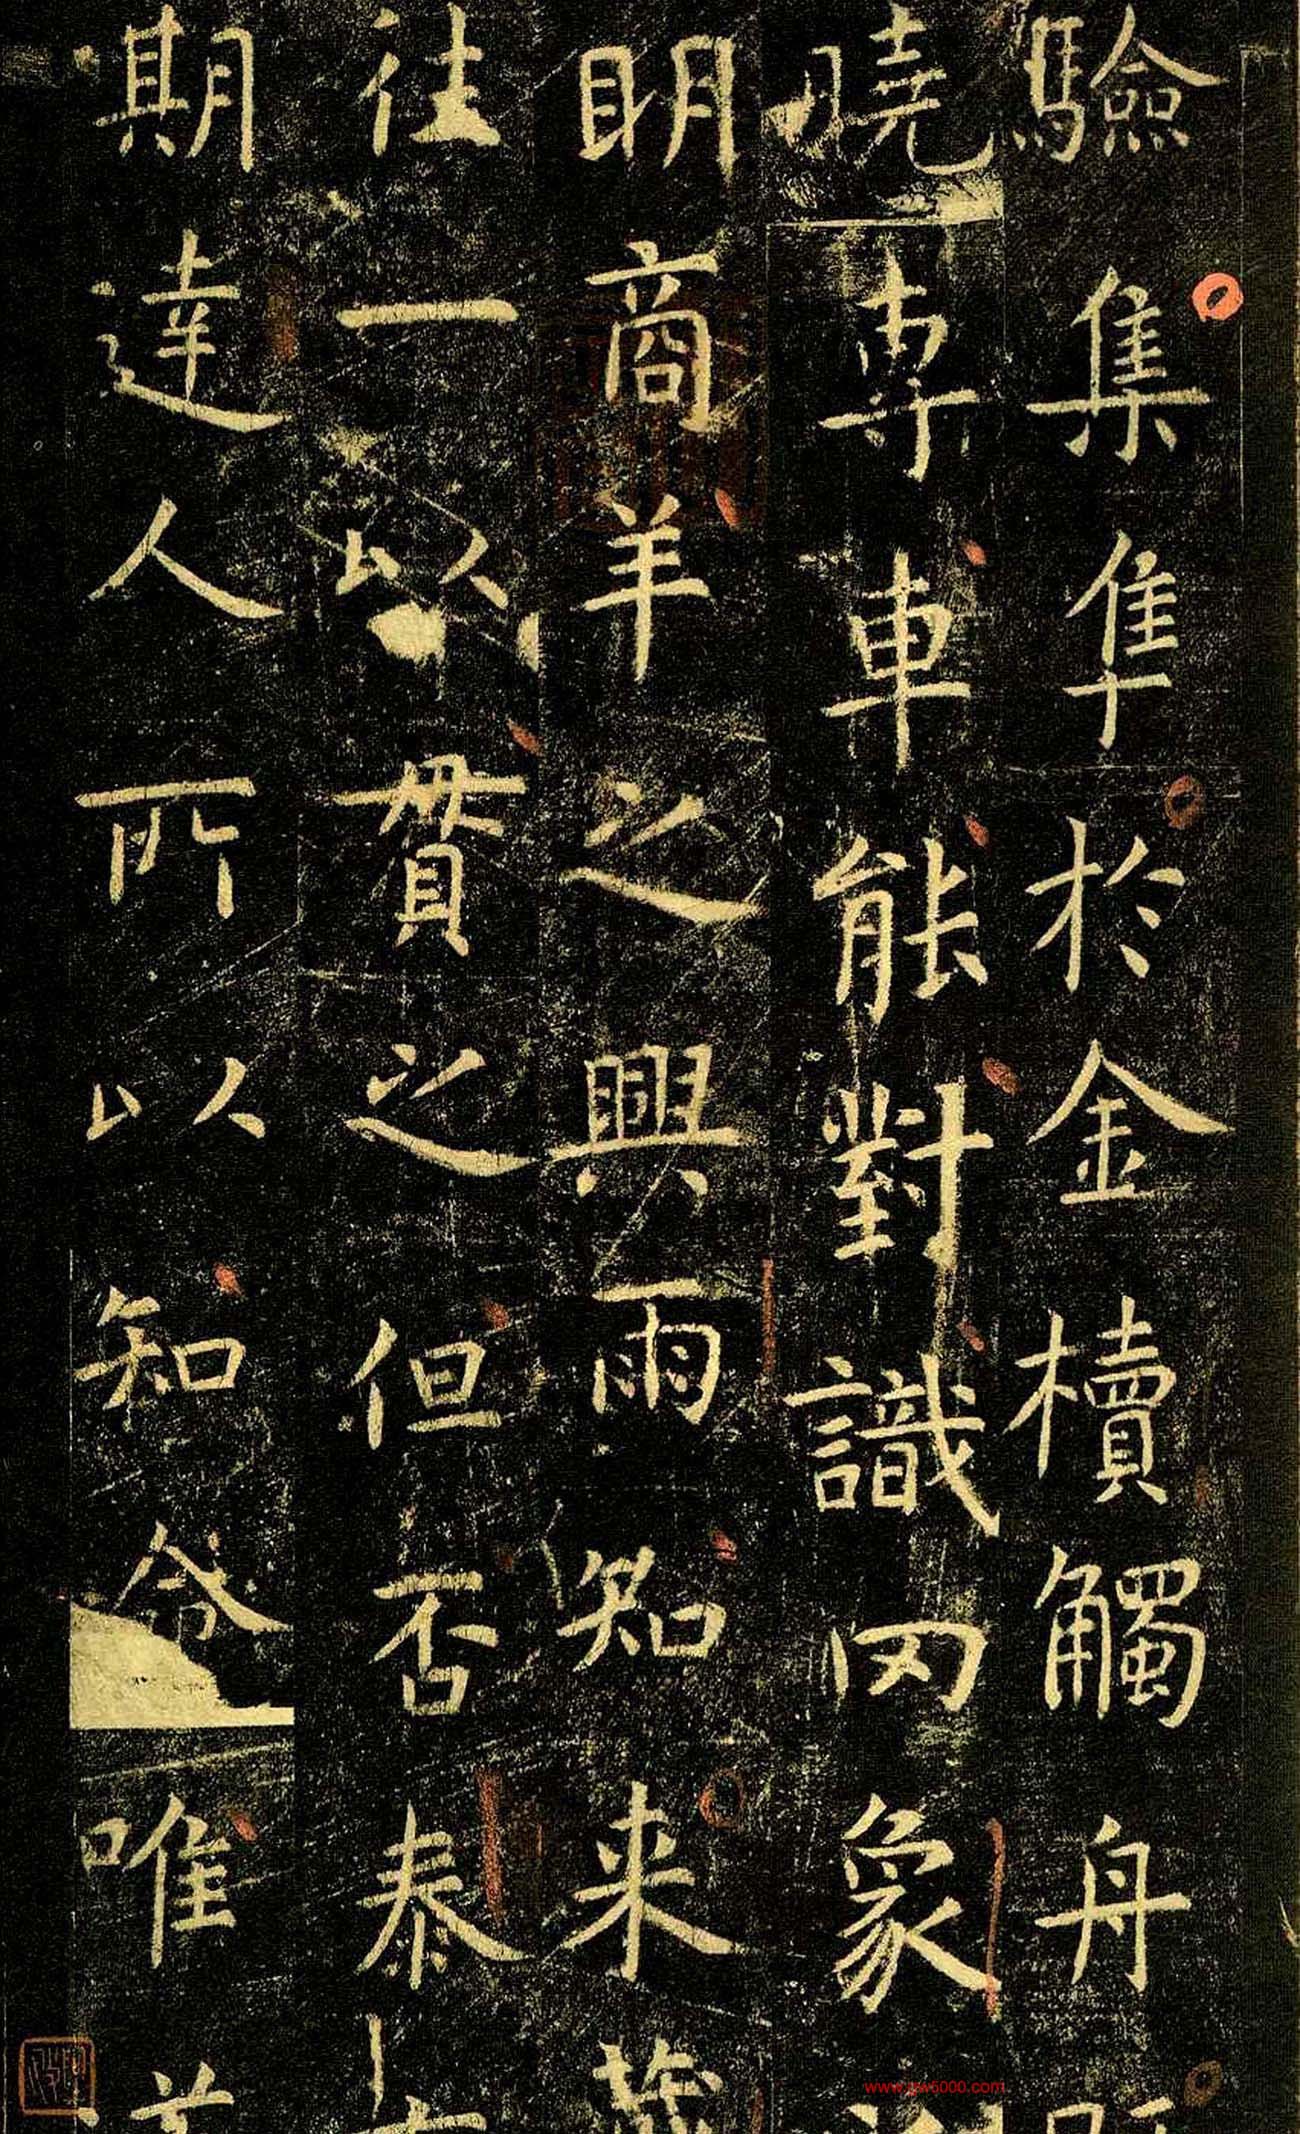 驗集隼於金櫝觸舟
曉專車能對識罔象
明商羊之興雨知来
往一以貫之但否泰
期達人所以知命唯
www.gw5000.com